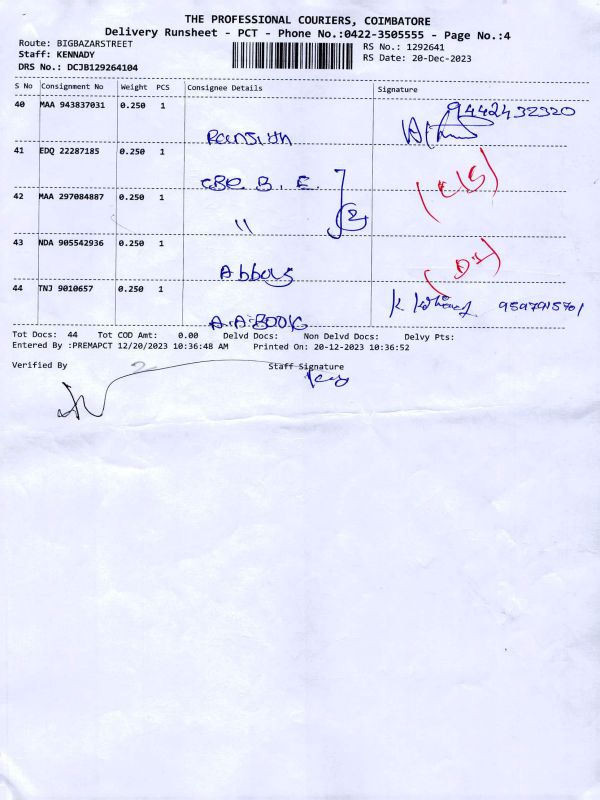 THE PROFESSIONAL COURIERS, COIMBATORE
Delivery Runsheet - PCT - Phone No.:0422-3505555 - Page No.:4
Route: BIGBAZARSTREET
Staff: KENNADY
DRS No.: DCJB129264104
RS No.: 1292641
RS Date: 20-Dec-2023
S No Consignment No Weight PCS Consignee Details Signature
40 MAA 943837031 0.250 1
Ranjith
9442432320
41 EDQ 22287185 0.250 1
CBE B. E.
42 MAA 297084887 0.250 1
" 2
43 NDA 905542936 0.250 1
Abbas
44 TNJ 9010657 0.250 1
A.A. BOOK
9597915701
Tot Docs: 44 Tot COD Amt: 0.00 Delvd Docs: Non Delvd Docs: Delvy Pts:
Entered By :PREMAPCT 12/20/2023 10:36:48 AM Printed On: 20-12-2023 10:36:52
Verified By 2 Staff Signature